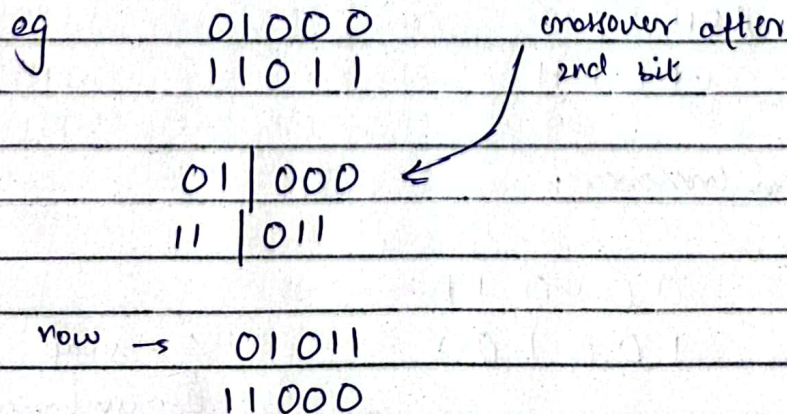 eg 01000 crossover after
11011 2nd bit
01 | 000
11 | 011
now → 01011
11000